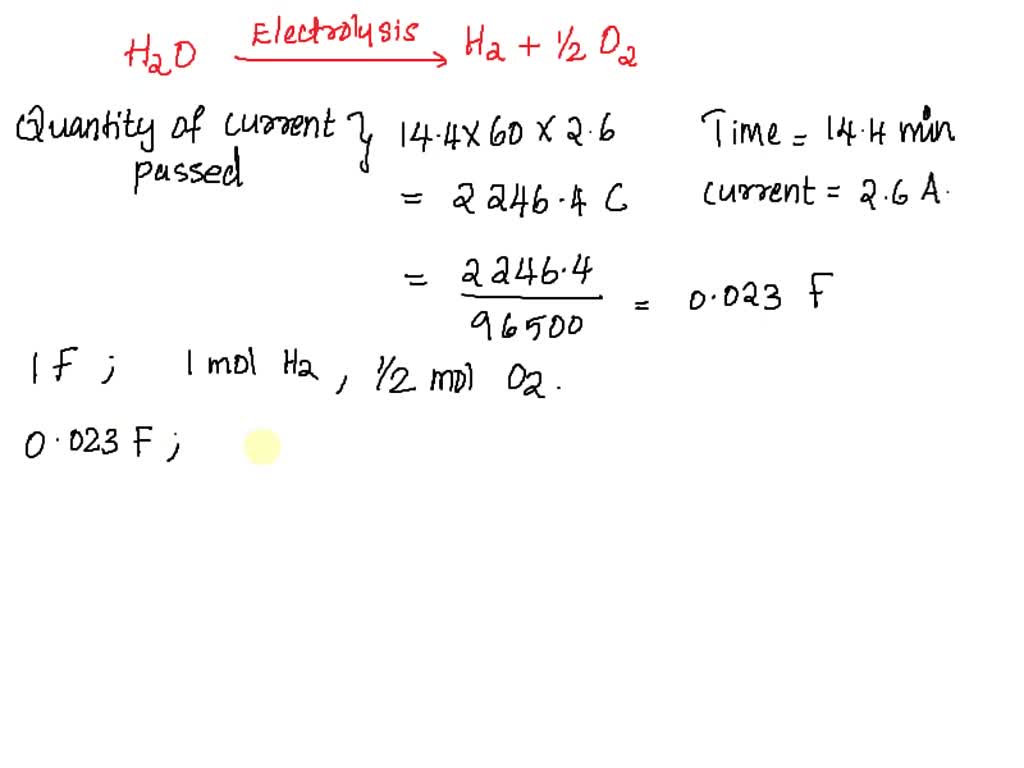 H2O Electrolysis → H2 + 1/2 O2
Quantity of current passed } 14.4 × 60 × 2.6
Time = 14.4 min
= 2246.4 C
current = 2.6 A.
= 2246.4 / 96500 = 0.023 F
1 F ; 1 mol H2 , 1/2 mol O2 .
0.023 F ;